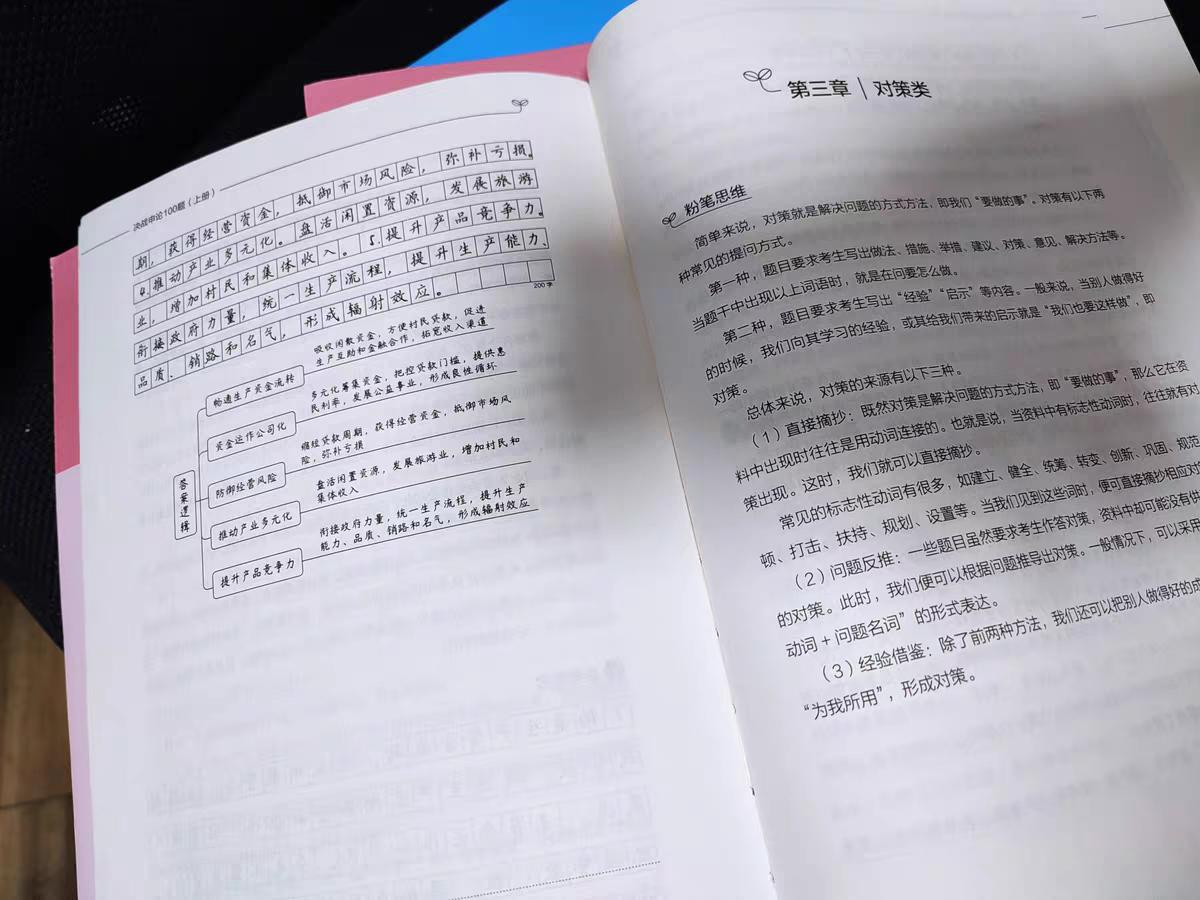 决战申论100题（上册）
期，获得经营资金，抵御市场风险，弥补亏损。
4.推动产业多元化。盘活闲置资源，发展旅游
业，增加村民和集体收入。5.提升产品竞争力。
衔接政府力量，统一生产流程，提升生产能力、
品质、销路和名气，形成辐射效应。
200字
答案逻辑
畅通生产资金流转
吸收闲散资金，方便村民贷款，促进
生产互助和金融合作，拓宽收入渠道
资金运作公司化
多元化筹集资金，把控贷款门槛，提供惠
民利率，发展公益事业，形成良性循环
防御经营风险
缩短贷款周期，获得经营资金，抵御市场风
险，弥补亏损
推动产业多元化
盘活闲置资源，发展旅游业，增加村民和
集体收入
提升产品竞争力
衔接政府力量，统一生产流程，提升生产
能力、品质、销路和名气，形成辐射效应
第三章 | 对策类
粉笔思维
简单来说，对策就是解决问题的方式方法，即我们“要做的事”。对策有以下两
种常见的提问方式。
第一种，题目要求考生写出做法、措施、举措、建议、对策、意见、解决方法等。
当题干中出现以上词语时，就是在问要怎么做。
第二种，题目要求考生写出“经验”“启示”等内容。一般来说，当别人做得好
的时候，我们向其学习的经验，或其给我们带来的启示就是“我们也要这样做”，即
对策。
总体来说，对策的来源有以下三种。
（1）直接摘抄：既然对策是解决问题的方式方法，即“要做的事”，那么它在资
料中出现时往往是用动词连接的。也就是说，当资料中有标志性动词时，往往就有对
策出现。这时，我们就可以直接摘抄。
常见的标志性动词有很多，如建立、健全、统筹、转变、创新、巩固、规范
顿、打击、扶持、规划、设置等。当我们见到这些词时，便可直接摘抄相应对
（2）问题反推：一些题目虽然要求考生作答对策，资料中却可能没有供
的对策。此时，我们便可以根据问题推导出对策。一般情况下，可以采用
动词+问题名词”的形式表达。
（3）经验借鉴：除了前两种方法，我们还可以把别人做得好的成
“为我所用”，形成对策。